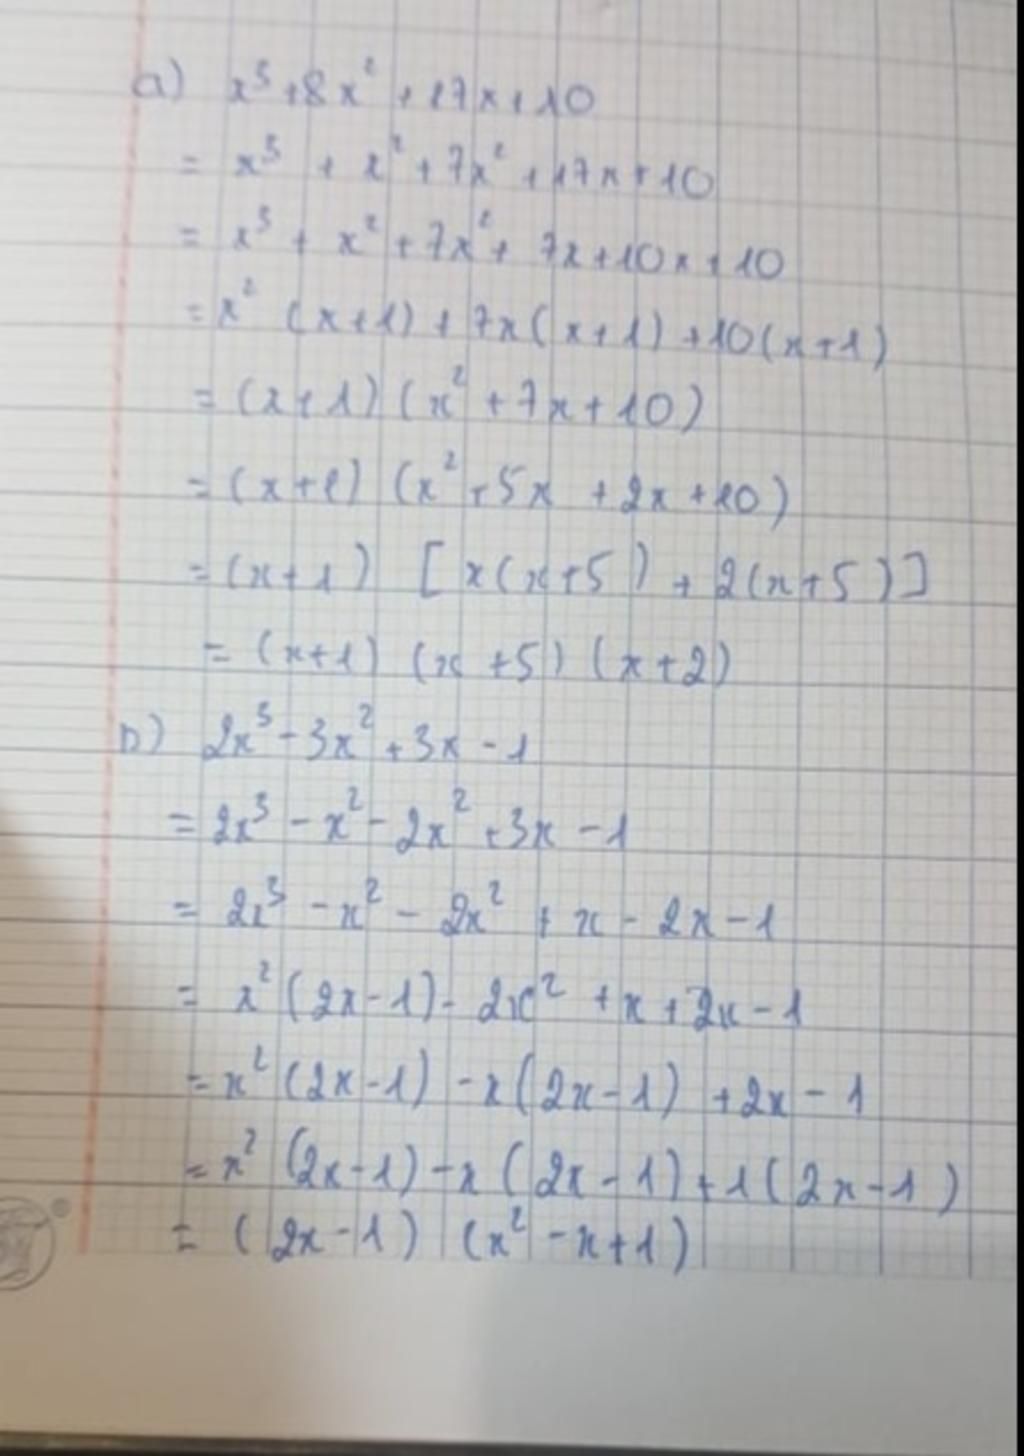 a) x³ + 8x² + 17x + 10
= x³ + x² + 7x² + 17x + 10
= x³ + x² + 7x² + 7x + 10x + 10
= x² (x+1) + 7x(x+1) + 10(x+1)
= (x+1) (x² + 7x + 10)
= (x+1) (x² + 5x + 2x + 10)
= (x+1) [x(x+5) + 2(x+5)]
= (x+1) (x+5) (x+2)
b) 2x³ - 3x² + 3x - 1
= 2x³ - x² - 2x² + 3x - 1
= 2x³ - x² - 2x² + x - 2x - 1
= x² (2x-1) - 2x² + x + 2x - 1
= x² (2x-1) - x(2x-1) + 2x - 1
= x² (2x-1) - x (2x-1) + 1(2x-1)
= (2x-1) (x² - x + 1)